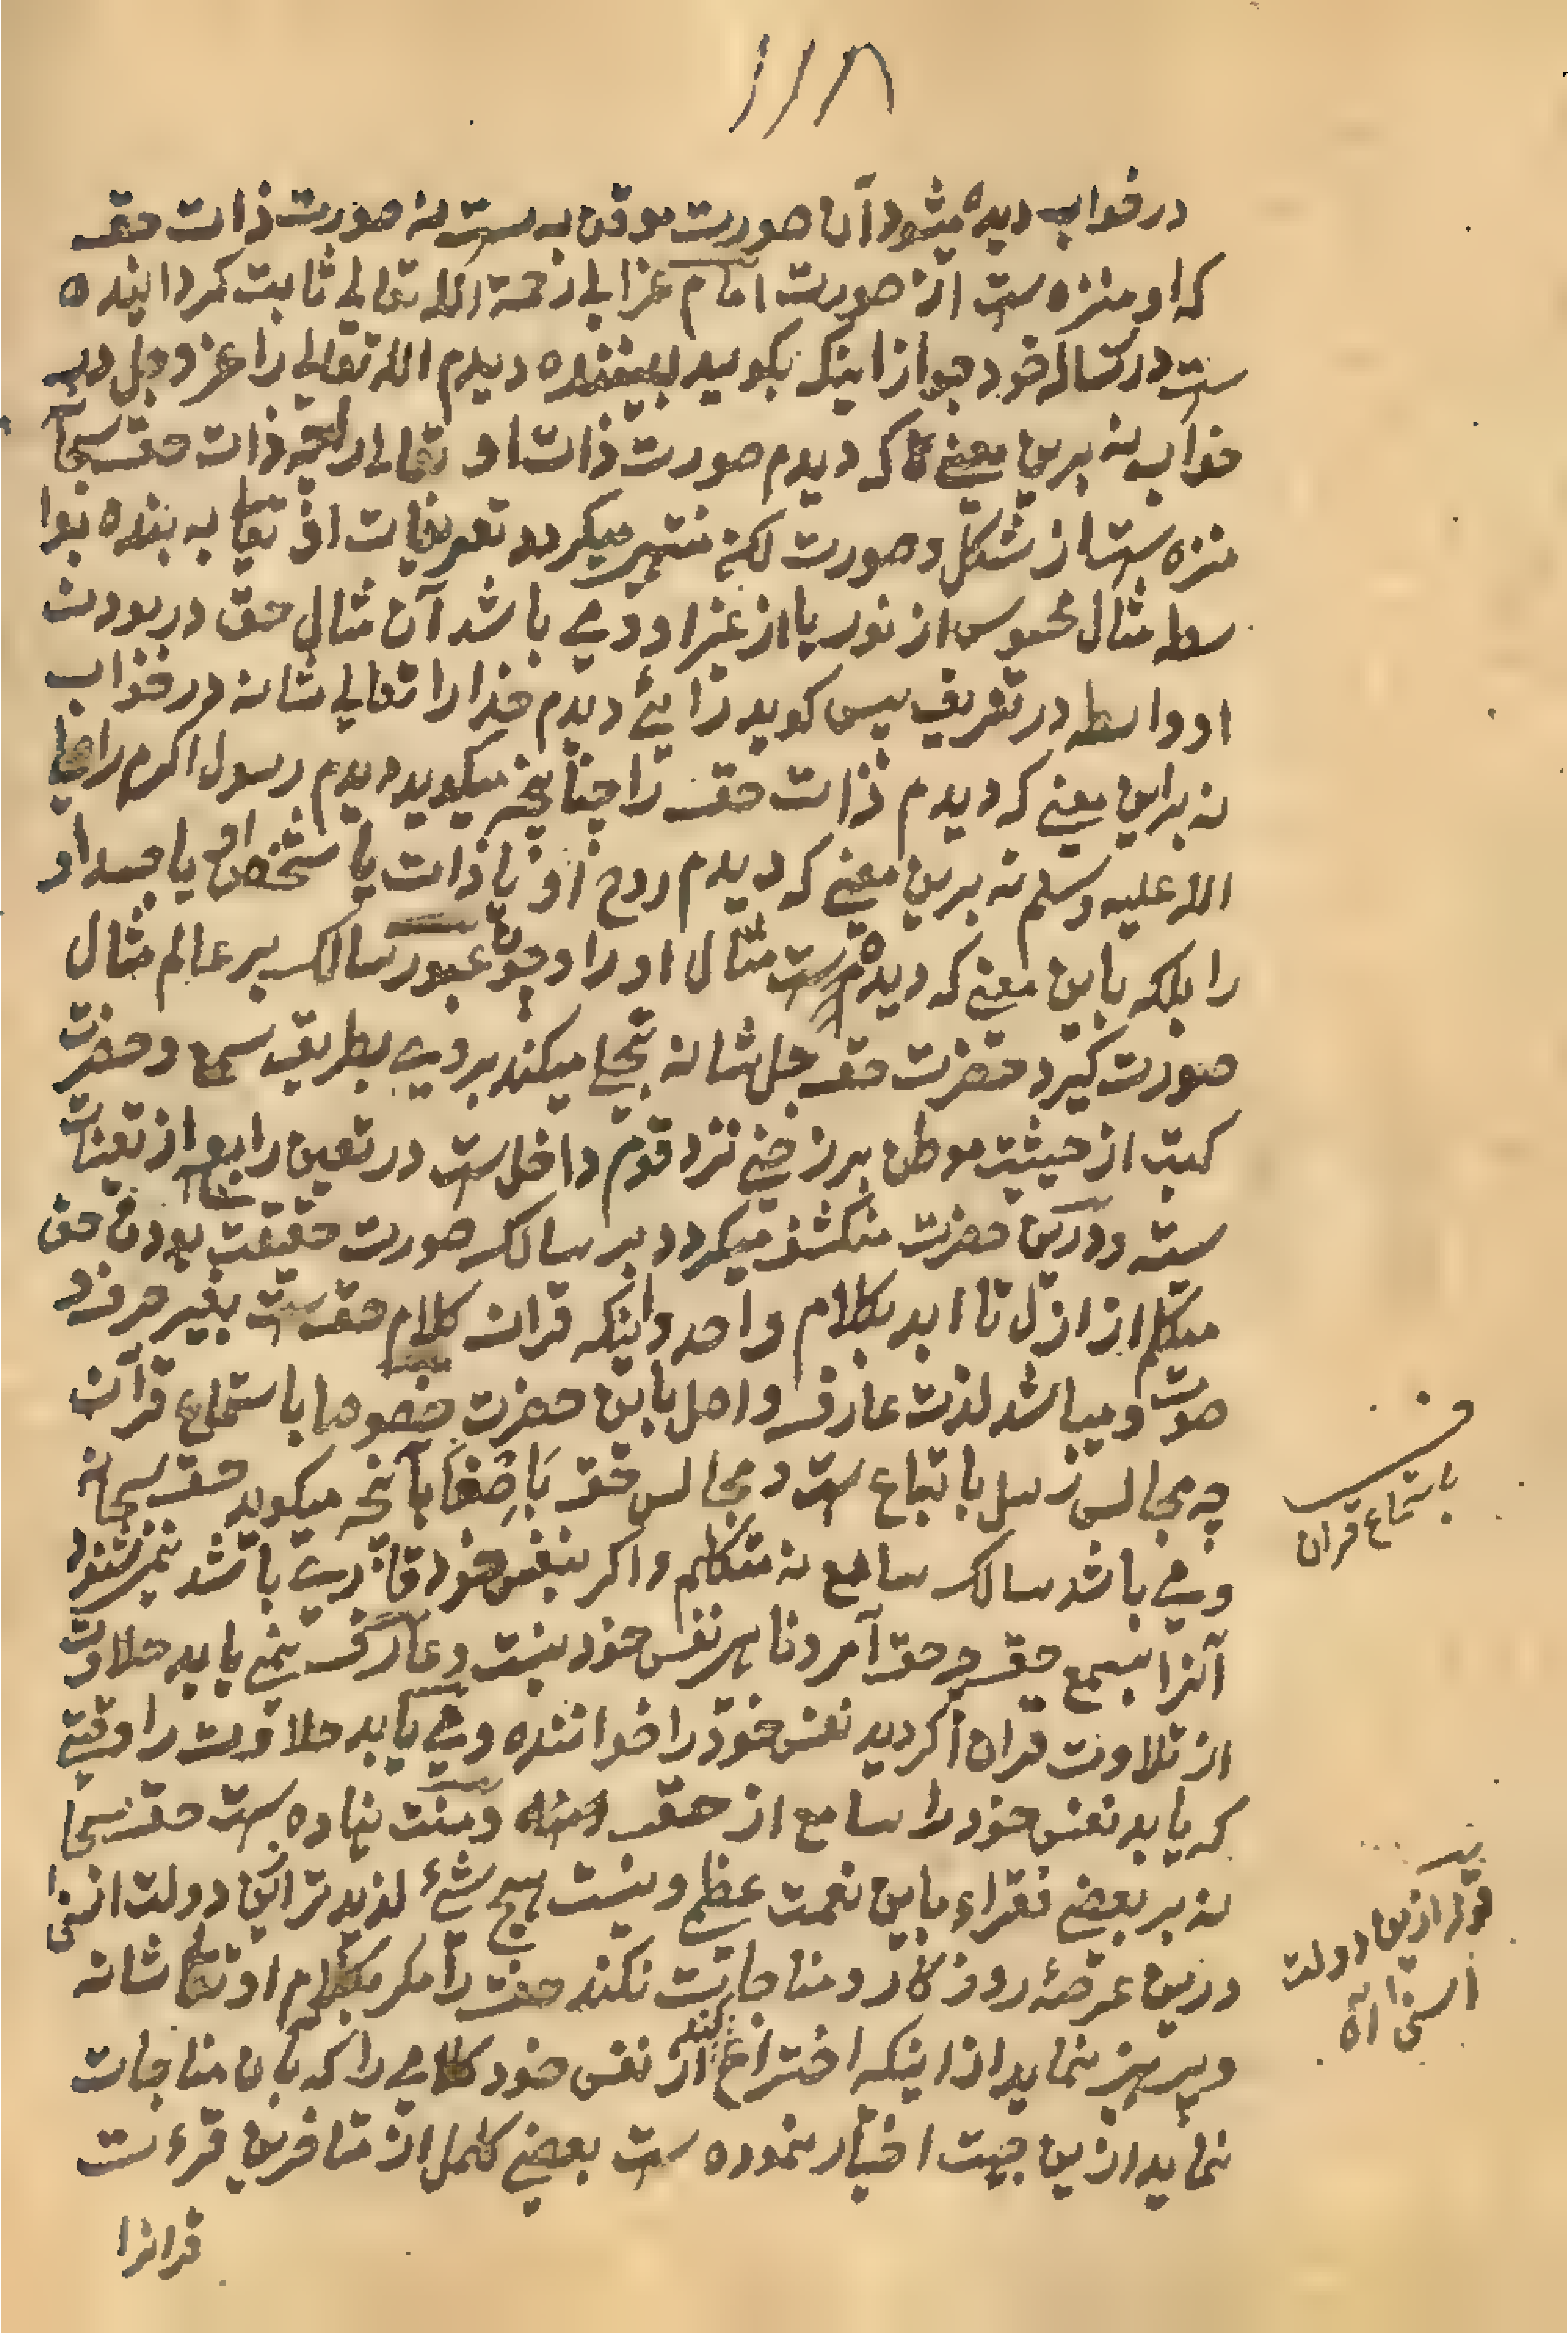 ١١٨
در خواب دیده میشود آن صورت موقن به ست نه صورت ذات حق
که او منزه ست از صورت امام غزالی رحمة الله تعالی ثابت کردانیده
ست در رساله خود جواز اینکه بکوید بیننده دیدم الله تعالی را عز و جل در
خواب نه برین معنی که دیدم صورت ذات او تعالی را چه ذات حق سبحانه
منزه ست از شکل و صورت لکن منتهی میکردد تعریفات او تعالی به بنده بوا
سطه مثال محسوس از نور یا از غیر او و می باشد آن مثال حق در بودن
او واسطه در تعریف پس کوید رائی دیدم خدا را تعالی شانه در خواب
نه براین معنی که دیدم ذات حق را چنانچه میکوید دیدم رسول اکرم را صلی
الله علیه وسلم نه برین معنی که دیدم روح او یا ذات یا شخص او یا جسد او
را بلکه باین معنی که دیده ام ست مثال او را و چون عبور سالک بر عالم مثال
صورت کیرد حضرت حق جل شانه تجلی میکند بروی بطریق سمع و حضرت
کبت از حیثیت موطن برزخی نزد قوم داخل ست در تعین رابع از تعینات
سته و درین حضرت منکشف میکردد بر سالک صورت حقیقت بودن حق
متکلم از ازل تا ابد بکلام واحد و اینکه قران کلام حق ست بغیر حرف و
صوت و میباشد لذت عارف واصل باین حضرت خصوصا باستماع قرآن
چه مجالس رسل باتباع ست و مجالس حق باصغا بآنچه میکوید حق سبحانه
و می باشد سالک سامع نه متکلم و اکر بنفس خود قاری باشد نیز شنود
آنرا بسمع حق چه حق آمر و ناهی نفس خود نیست و عارف نمی یابد حلاوت
از تلاوت قران اکر دید نفس خود را خواننده و می یابد حلاوت را وقتی
که یابد نفس خود را سامع از حق و منت نهاده ست حق سبحا
نه بر بعضی فقراء باین نعمت عظمی و نیست هیچ شئ لذیذتر ازین دولت اسنی
درین عرصهٔ روزکار و مناجات نکند حق را مکر بکلام او تعالی شانه
و پرهیز نماید از اینکه اختراع کند از نفس خود کلامی را که بان مناجات
نماید ازین جهت اختیار نموده ست بعضی کمل از متاخرین قرءت
قرانرا
باستماع قران
قوله ازین دولت
اسنی اه